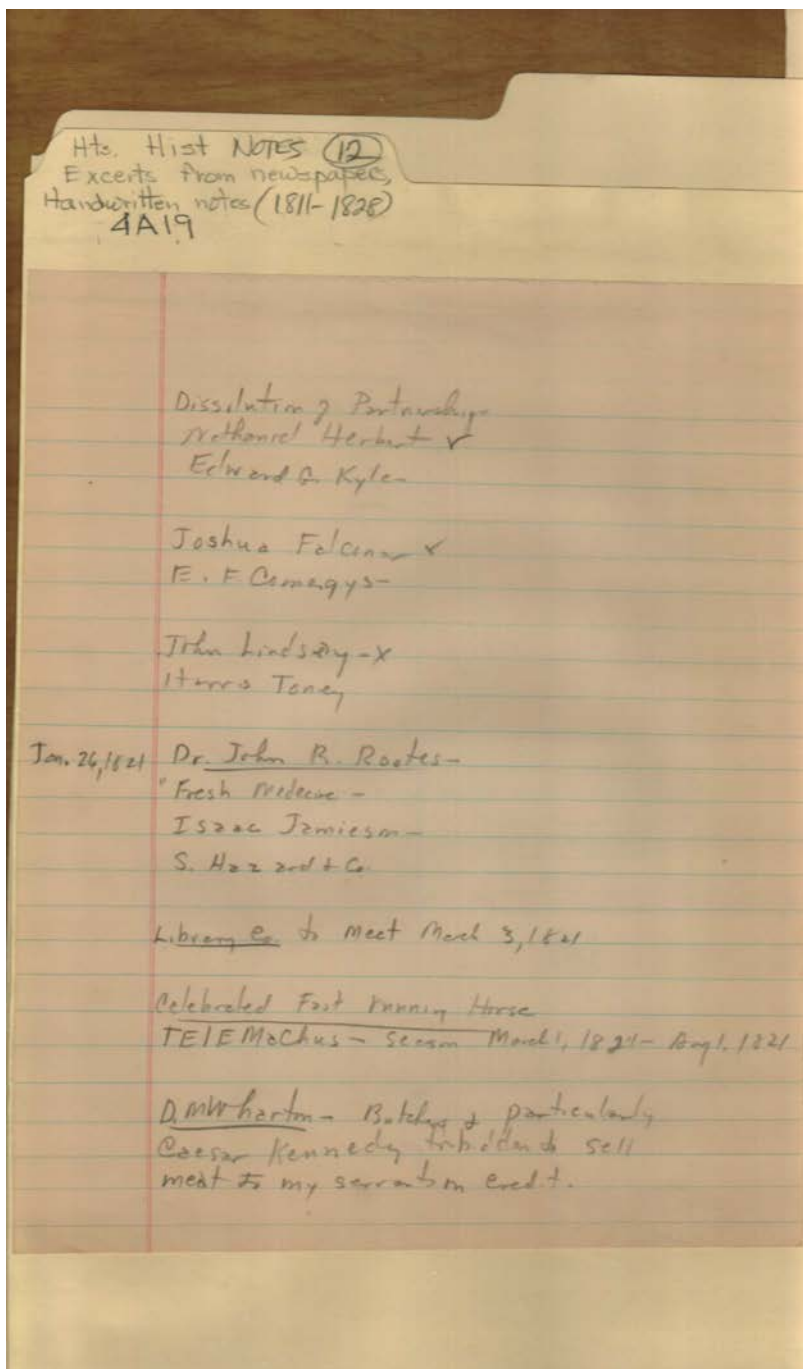 Hts. Hist NOTES (12)
Excerts from newspapers,
Handwritten notes (1811-1828)
4A19
Dissolution of Partnership
Nathaniel Herbert ✓
Edward G. Kyle-
Joshua Falconar ✓
E. F. Comegys-
John Lindsay - x
Harris Toney
Jan. 26, 1821 Dr. John R. Rootes-
"Fresh Medecine -
Isaac Jamieson-
S. Hazzard & Co.
Library Co. to meet March 3, 1821
Celebrated Fast running Horse
TElEMaChus - season March 1, 1821 - Aug 1. 1821
D. M Wharton - Butchers & particularly
Caesar Kennedy forbidden to sell
meat to my servants on credit.